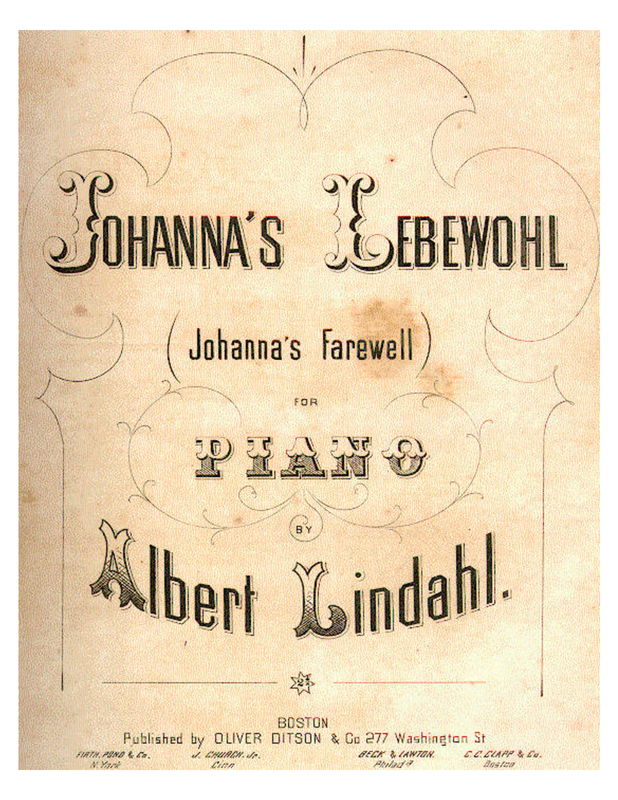 JOHANNA'S LEBEWOHL
(Johanna's Farewell)
FOR
PIANO
BY
Albert Lindahl.
2½
BOSTON
Published by OLIVER DITSON & Co 277 Washington St
FIRTH, POND & Co. J. CHURCH, Jr. BECK & LAWTON. C.C. CLAPP & Co.
N. York Cinn Philadª Boston